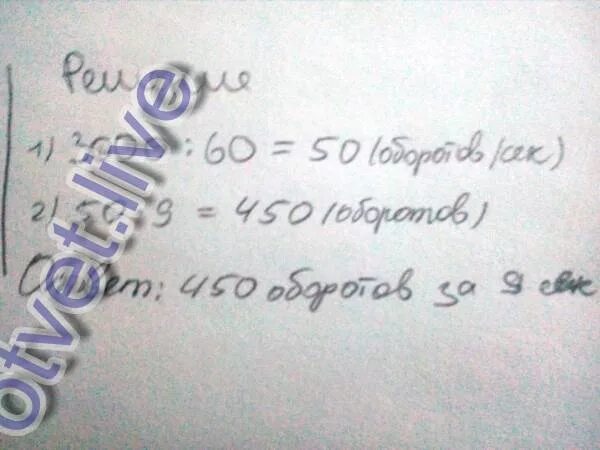 Решение
1) 3000 : 60 = 50 (оборотов/сек)
2) 50 · 9 = 450 (оборотов)
Ответ: 450 оборотов за 9 сек
otvet.live